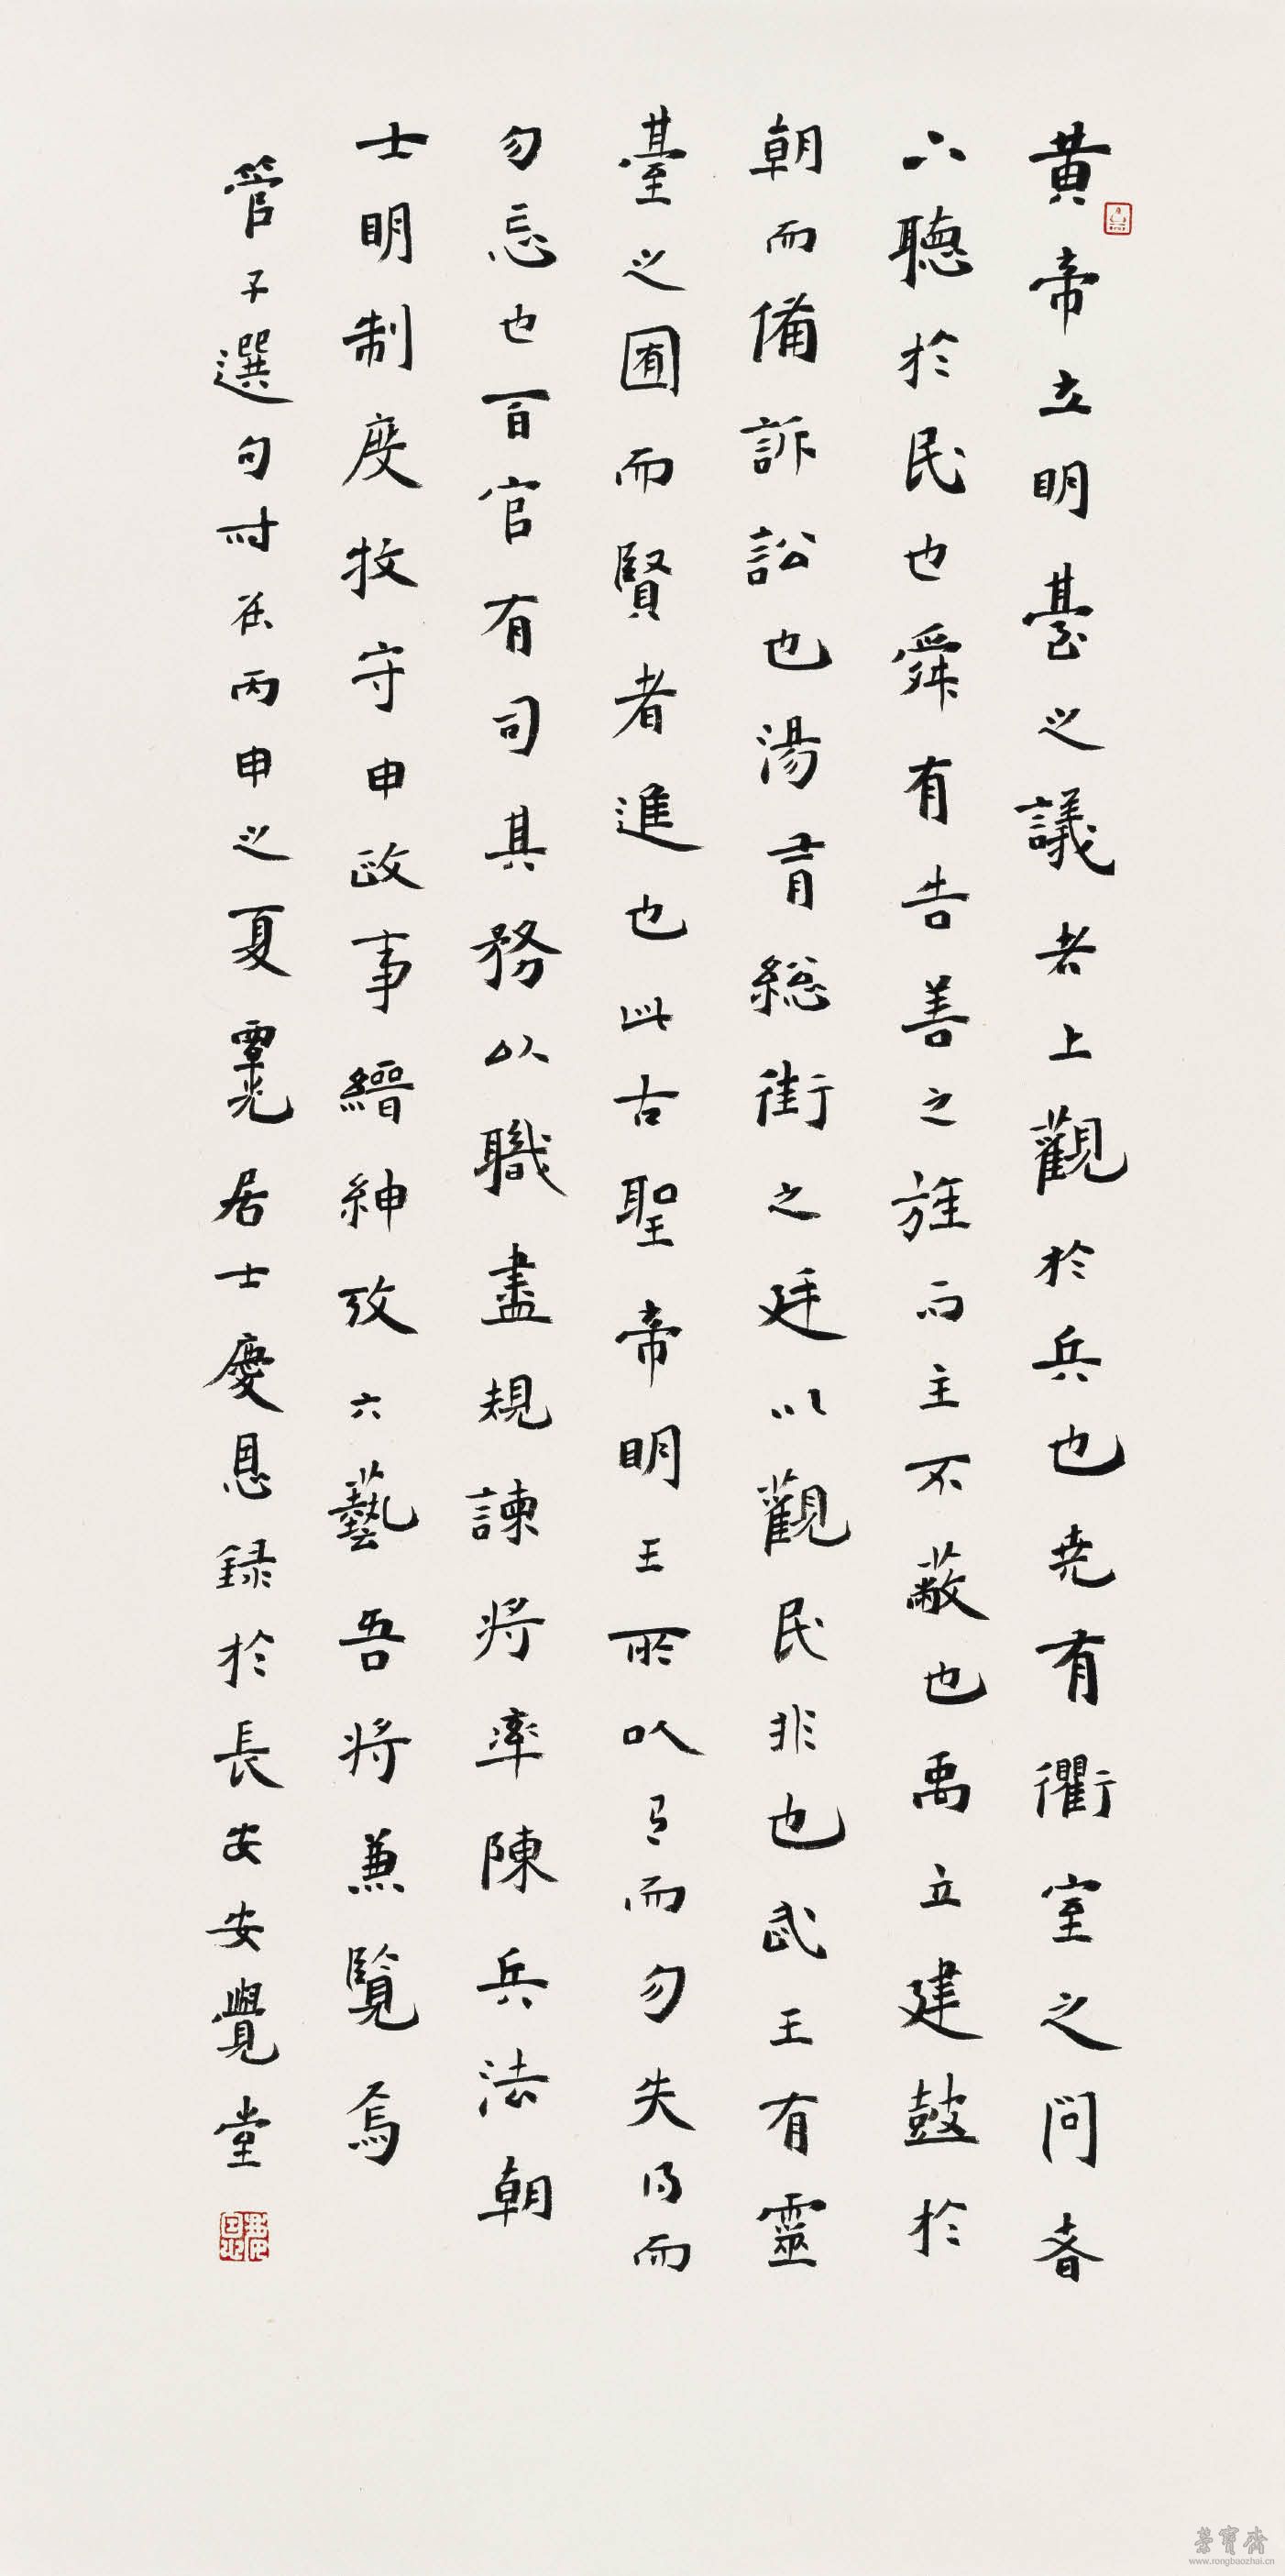 黃帝立明臺之議者上觀於兵也堯有衢室之問者
下聽於民也舜有告善之旌而主不蔽也禹立建鼓於
朝而備訴訟也湯有總街之廷以觀民非也武王有靈
臺之囿而賢者進也此古聖帝明王所以有而勿失得而
勿忘也百官有司其務以職盡規諫將率陳兵法朝
士明制度牧守申政事縉紳攷六藝吾將兼覽焉
管子選句時在丙申之夏覃光居士慶恩録於長安安覺堂
榮寶齋
www.rongbaozhai.cn